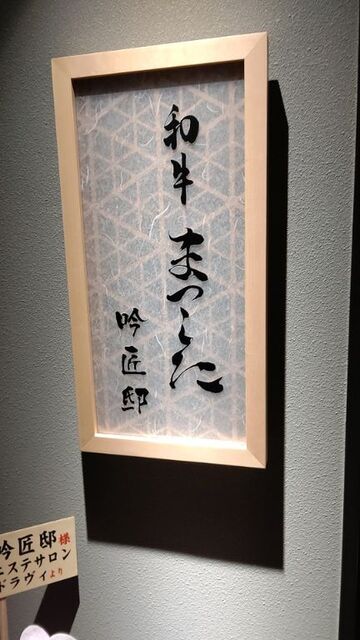 和牛 まつした
吟匠邸
吟匠邸様
エステサロン
ドラヴィより